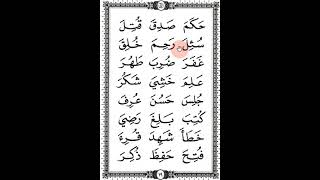 حَكَمَ صَدِقَ قُتِلَ
سُئِلَ رَحِمَ خُلِقَ
غَفَرَ ضُرِبَ طَهُرَ
عَلِمَ خَشِيَ شَكُرَ
جُلِسَ حَسُنَ عُرِفَ
كُتِبَ بَلِغَ رَضِيَ
خَطَأَ شَهِدَ قُرِءَ
فُتِحَ حَفِظَ ذُكِرَ